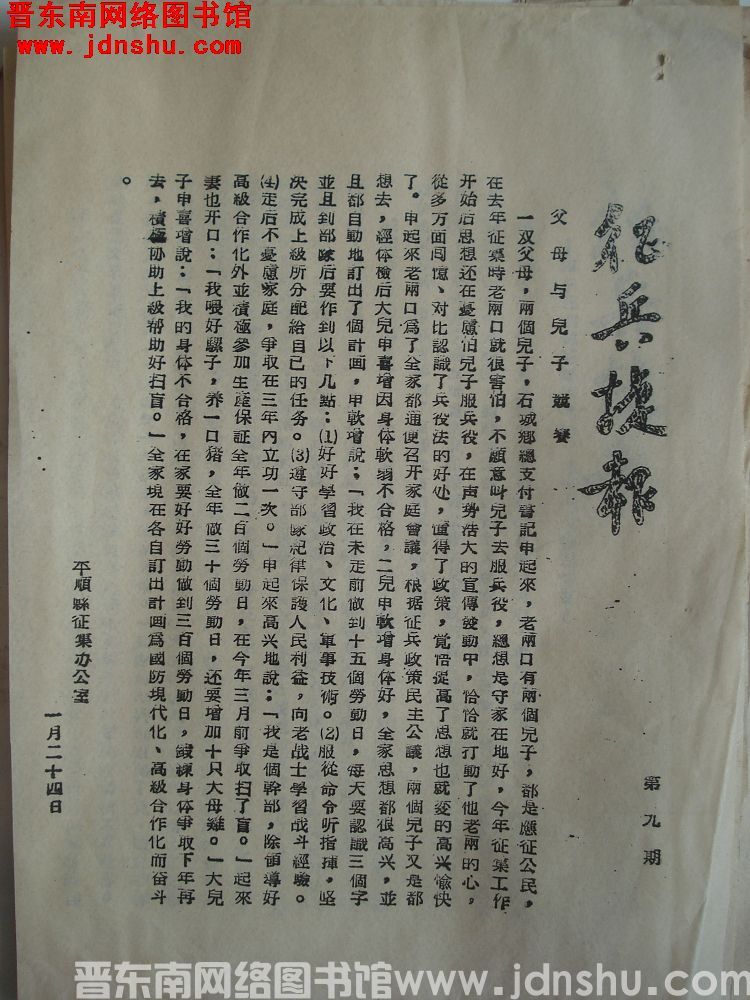 晋东南网络图书馆
www.jdnshu.com
征兵捷报
第九期
父母与兒子競賽
一双父母，兩個兒子，石城鄉總支付書記申起來，老兩口有兩個兒子，都是應征公民，
在去年征集時老兩口就很害怕，不願意叫兒子去服兵役，總想是守家在地好，今年征集工作
开始后思想还在憂慮怕兒子服兵役，在声勢浩大的宣傳發動中，恰恰就打動了他老兩的心，
從多方面囘憶、对比認識了兵役法的好处，懂得了政策，覚悟提高了思想也就变的高兴愉快
了。申起來老兩口爲了全家都通便召开家庭會議，根据征兵政策民主公議，兩個兒子又是都
想去，經体檢后大兒申喜增因身体軟弱不合格，二兒申軟增身体好，全家思想都很高兴，並
且都自動地訂出了個計画，申軟增說：「我在未走前做到十五個勞動日，每天要認識三個字
並且到部隊后要作到以下几點：⑴好好学習政治、文化、軍事技術。⑵服從命令听指揮，坚
决完成上級所分配給自己的任务。⑶遵守部隊紀律保護人民利益，向老战士学習战斗經驗。
⑷走后不憂慮家庭，爭取在三年內立功一次。」申起來高兴地說：「我是個幹部，除領導好
高級合作化外並積極參加生產保証全年做二百個勞動日，在今年三月前爭取扫了盲。」起來
妻也开口：「我喂好騾子，养一口猪，全年做三十個勞動日，还要增加十只大母雞。」大兒
子申喜增說：「我的身体不合格，在家要好好勞動做到三百個勞動日，鍛鍊身体爭取下年再
去，積極协助上級帮助好扫盲。」全家現在各自訂出計画爲國防現代化、高級合作化而奋斗
。
平順縣征集办公室
一月二十四日
晋东南网络图书馆www.jdnshu.com